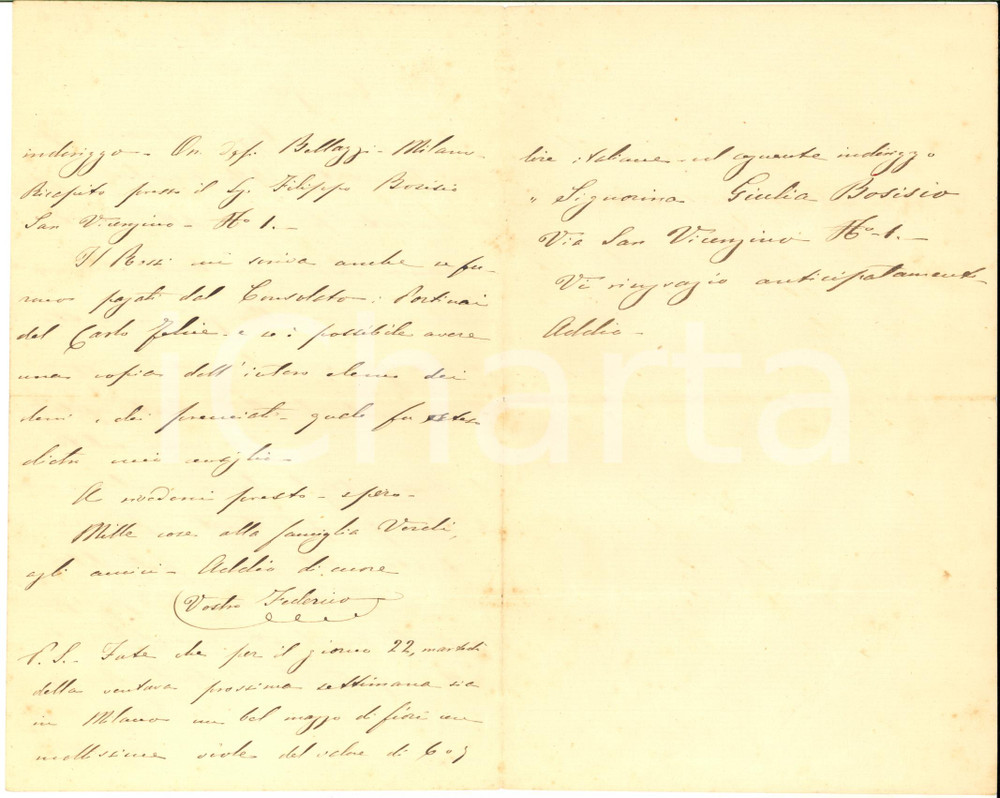 indirizzo - On. Bellazzi - Milano -
Ricapito presso il Sg. Filippo Bosisio
San Vicenzino - No 1. -
Il Rossi mi scriva anche se fu-
rono pagati dal Consolato i Portinai
del Carlo Felice - e se è possibile avere
una copia dell'intero elenco dei
doni e dei premiati - quale fu
A rivederci presto - spero -
Mille cose alla famiglia Verdi,
agli amici - Addio di cuore
Vostro Federico
P. S. - Fate che per il giorno 22, martedì
della ventura prossima settimana sia
in Milano un bel mazzo di fiori con
moltissime viole del valore di 6 o 7
lire italiane - al seguente indirizzo
" Signorina Giulia Bosisio
Via San Vicenzino No - 1. -
Vi ringrazio anticipatamente
Addio -
iCharta